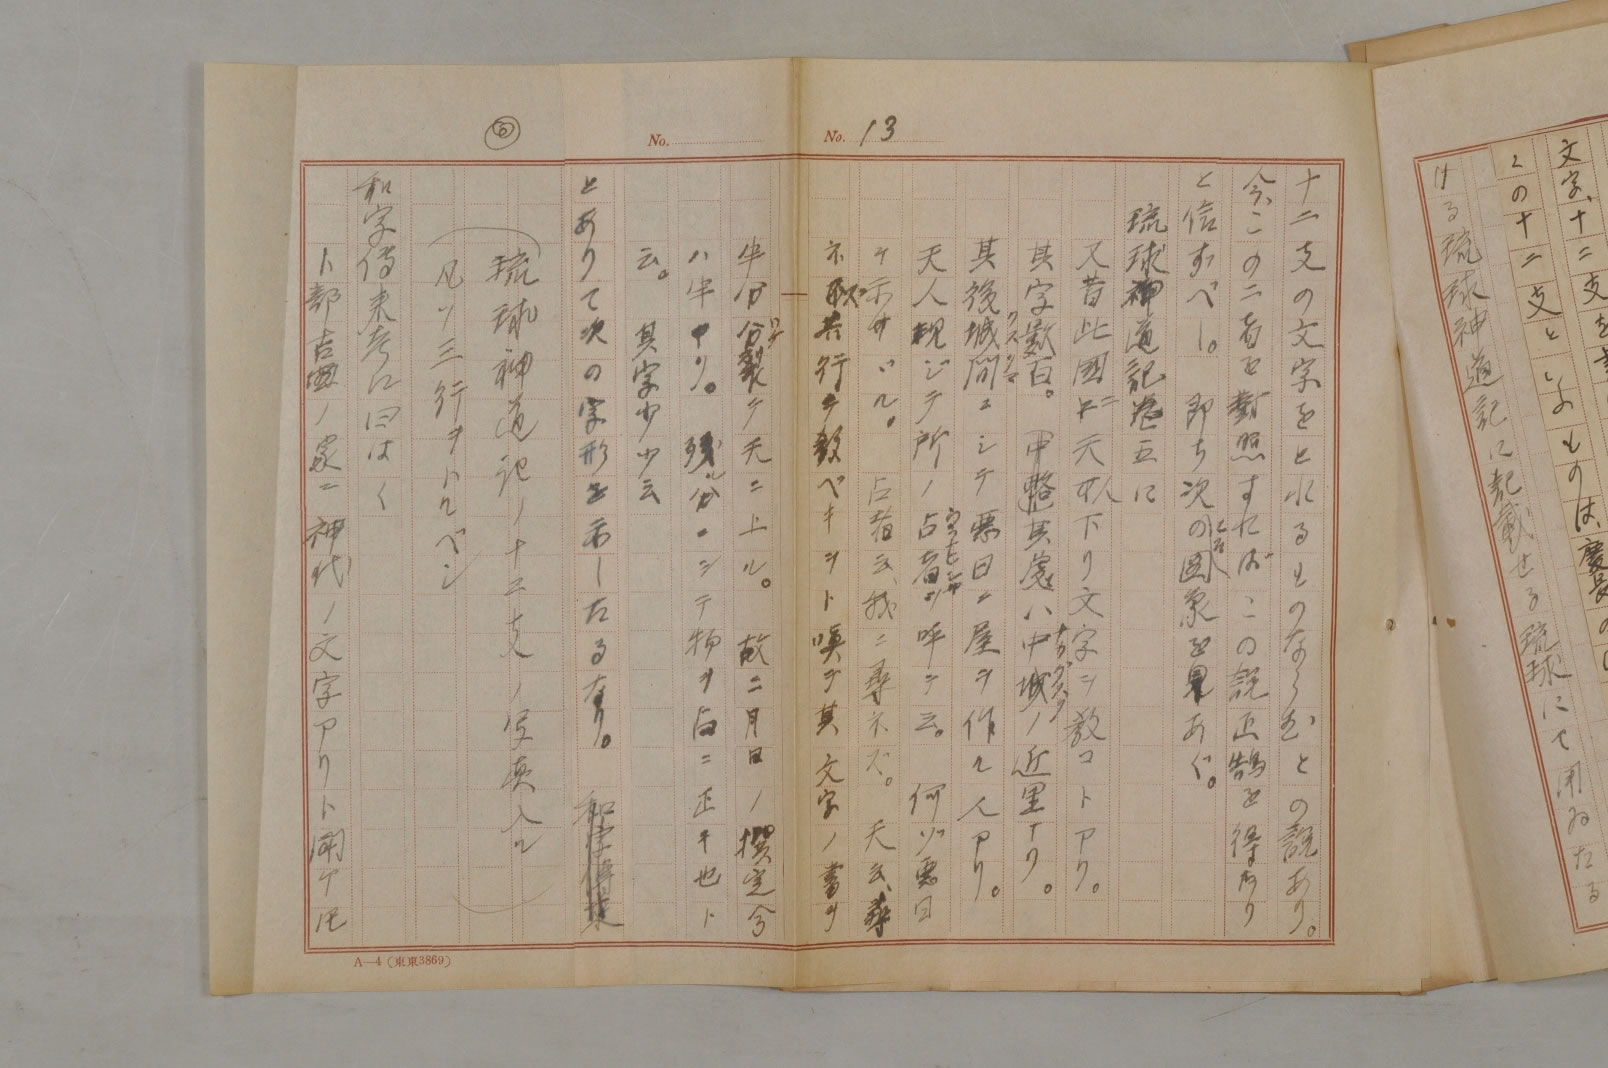 文字、十二支を
この十二支といふものは、慶長の
ける琉球神道記に記載せる琉球にて用ゐたる
No. 13
十二支の文字をとれるものならむとの説あり。
今この二者を対照すればこの説正鵠を得たり
と信ずべし。即ち次の図象を見あぐ。
琉球神道記巻五に
又昔此國ニ天人下リ文字ヲ教コトアリ。
其字数百。中整其處ハ中城ノ近里ナリ。
ナカグスク
其後城間ニシテ悪日ニ屋ヲ作ル人アリ。
グスクマ
天人現ジテ所ノ占者ヲ呼テ云。何ゾ悪日
ヲ示サヾル。占者云、我ニ尋ネズ。天云、尋
ネズ共行テ教ベキヲト嘆テ其文字ノ書ヲ
半分分裂テ天ニ上ル。故ニ月日ノ撰定今
ワケ
ハ半ナリ。残分ニシテ物ヲ占ニ正キ也ト
云。其字少少云
とありて次の字形を示したるなり。
琉球神道記ノ十二支ノ写真入ル
凡ソ三行ヲトルベシ
和字傳来考に曰はく
卜部吉田ノ家ニ神代ノ文字アリト聞ケ𪜈
No.
6
A—4(東東3869)